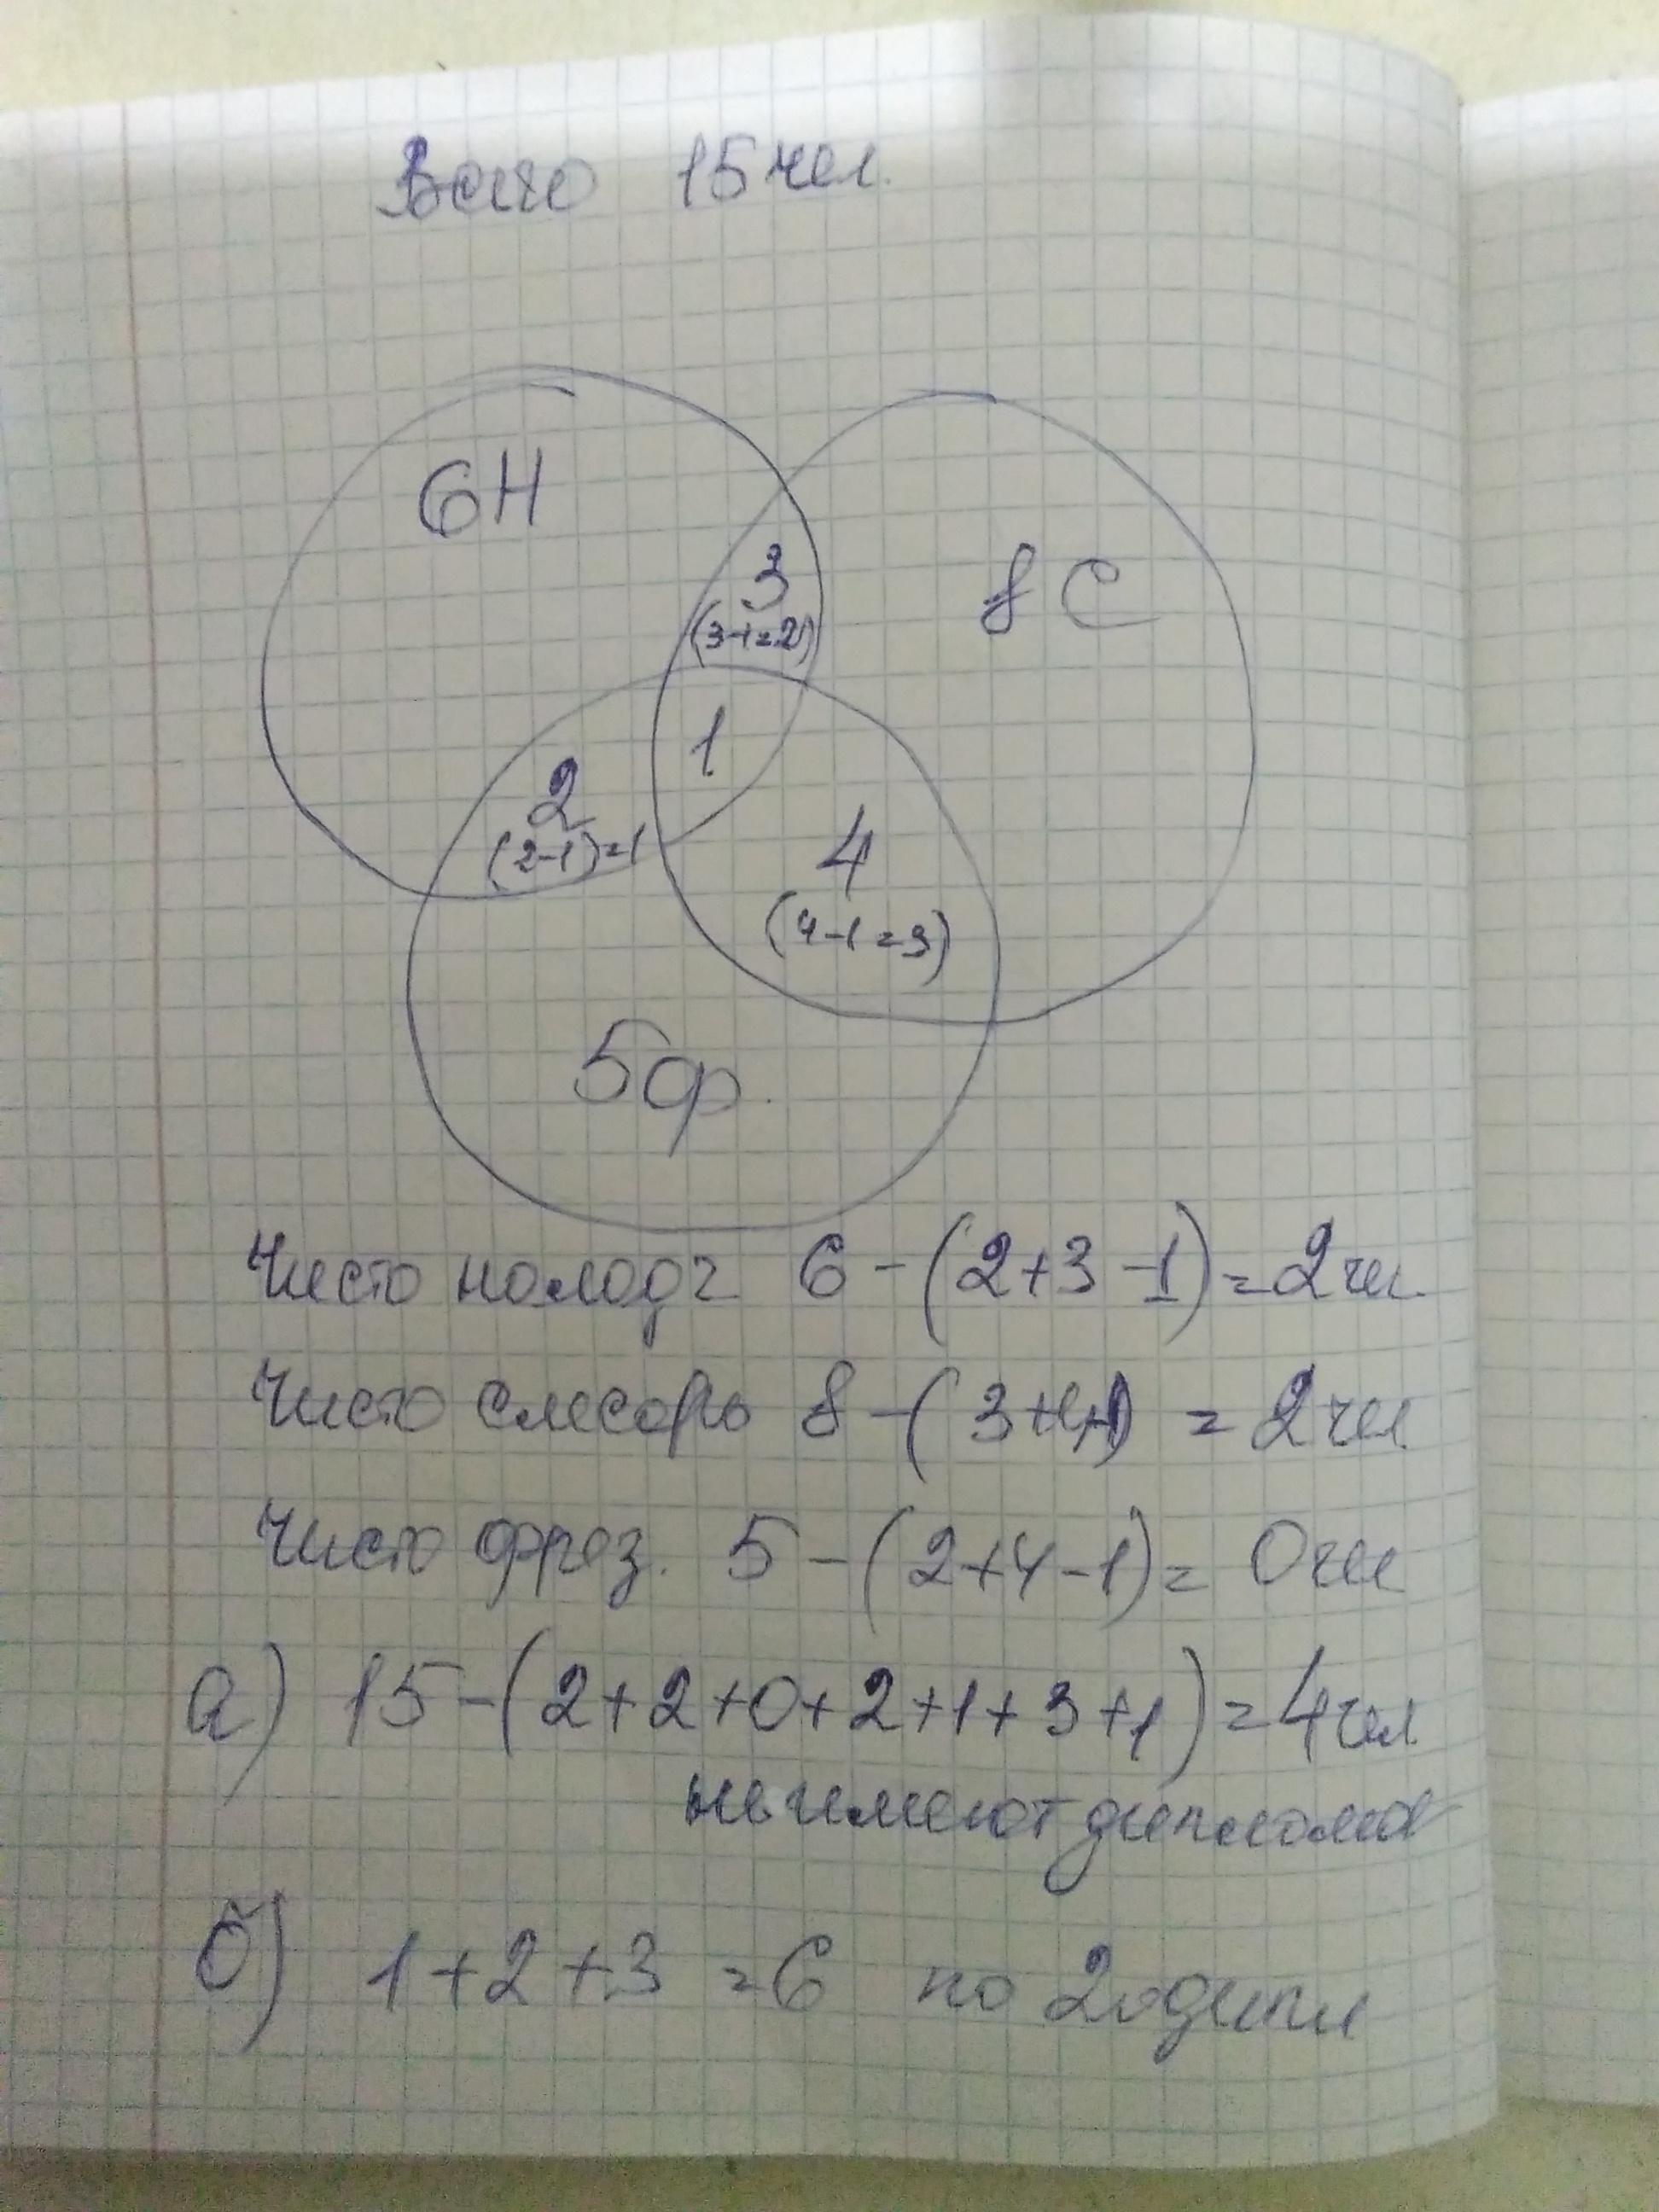 Всего 15 чел.
6Н
8 С
3
(3-1=2)
1
2
(2-1)=1
4
(4-1=3)
5ф.
Чисто наладч. 6-(2+3-1)=2чел.
Чисто слесарь 8-(3+4-1) = 2чел
Чисто фрез. 5-(2+4-1)= 0чел
а) 15-(2+2+0+2+1+3+1)=4чел
не имеют диплома
б) 1+2+3=6 по 2 дипл